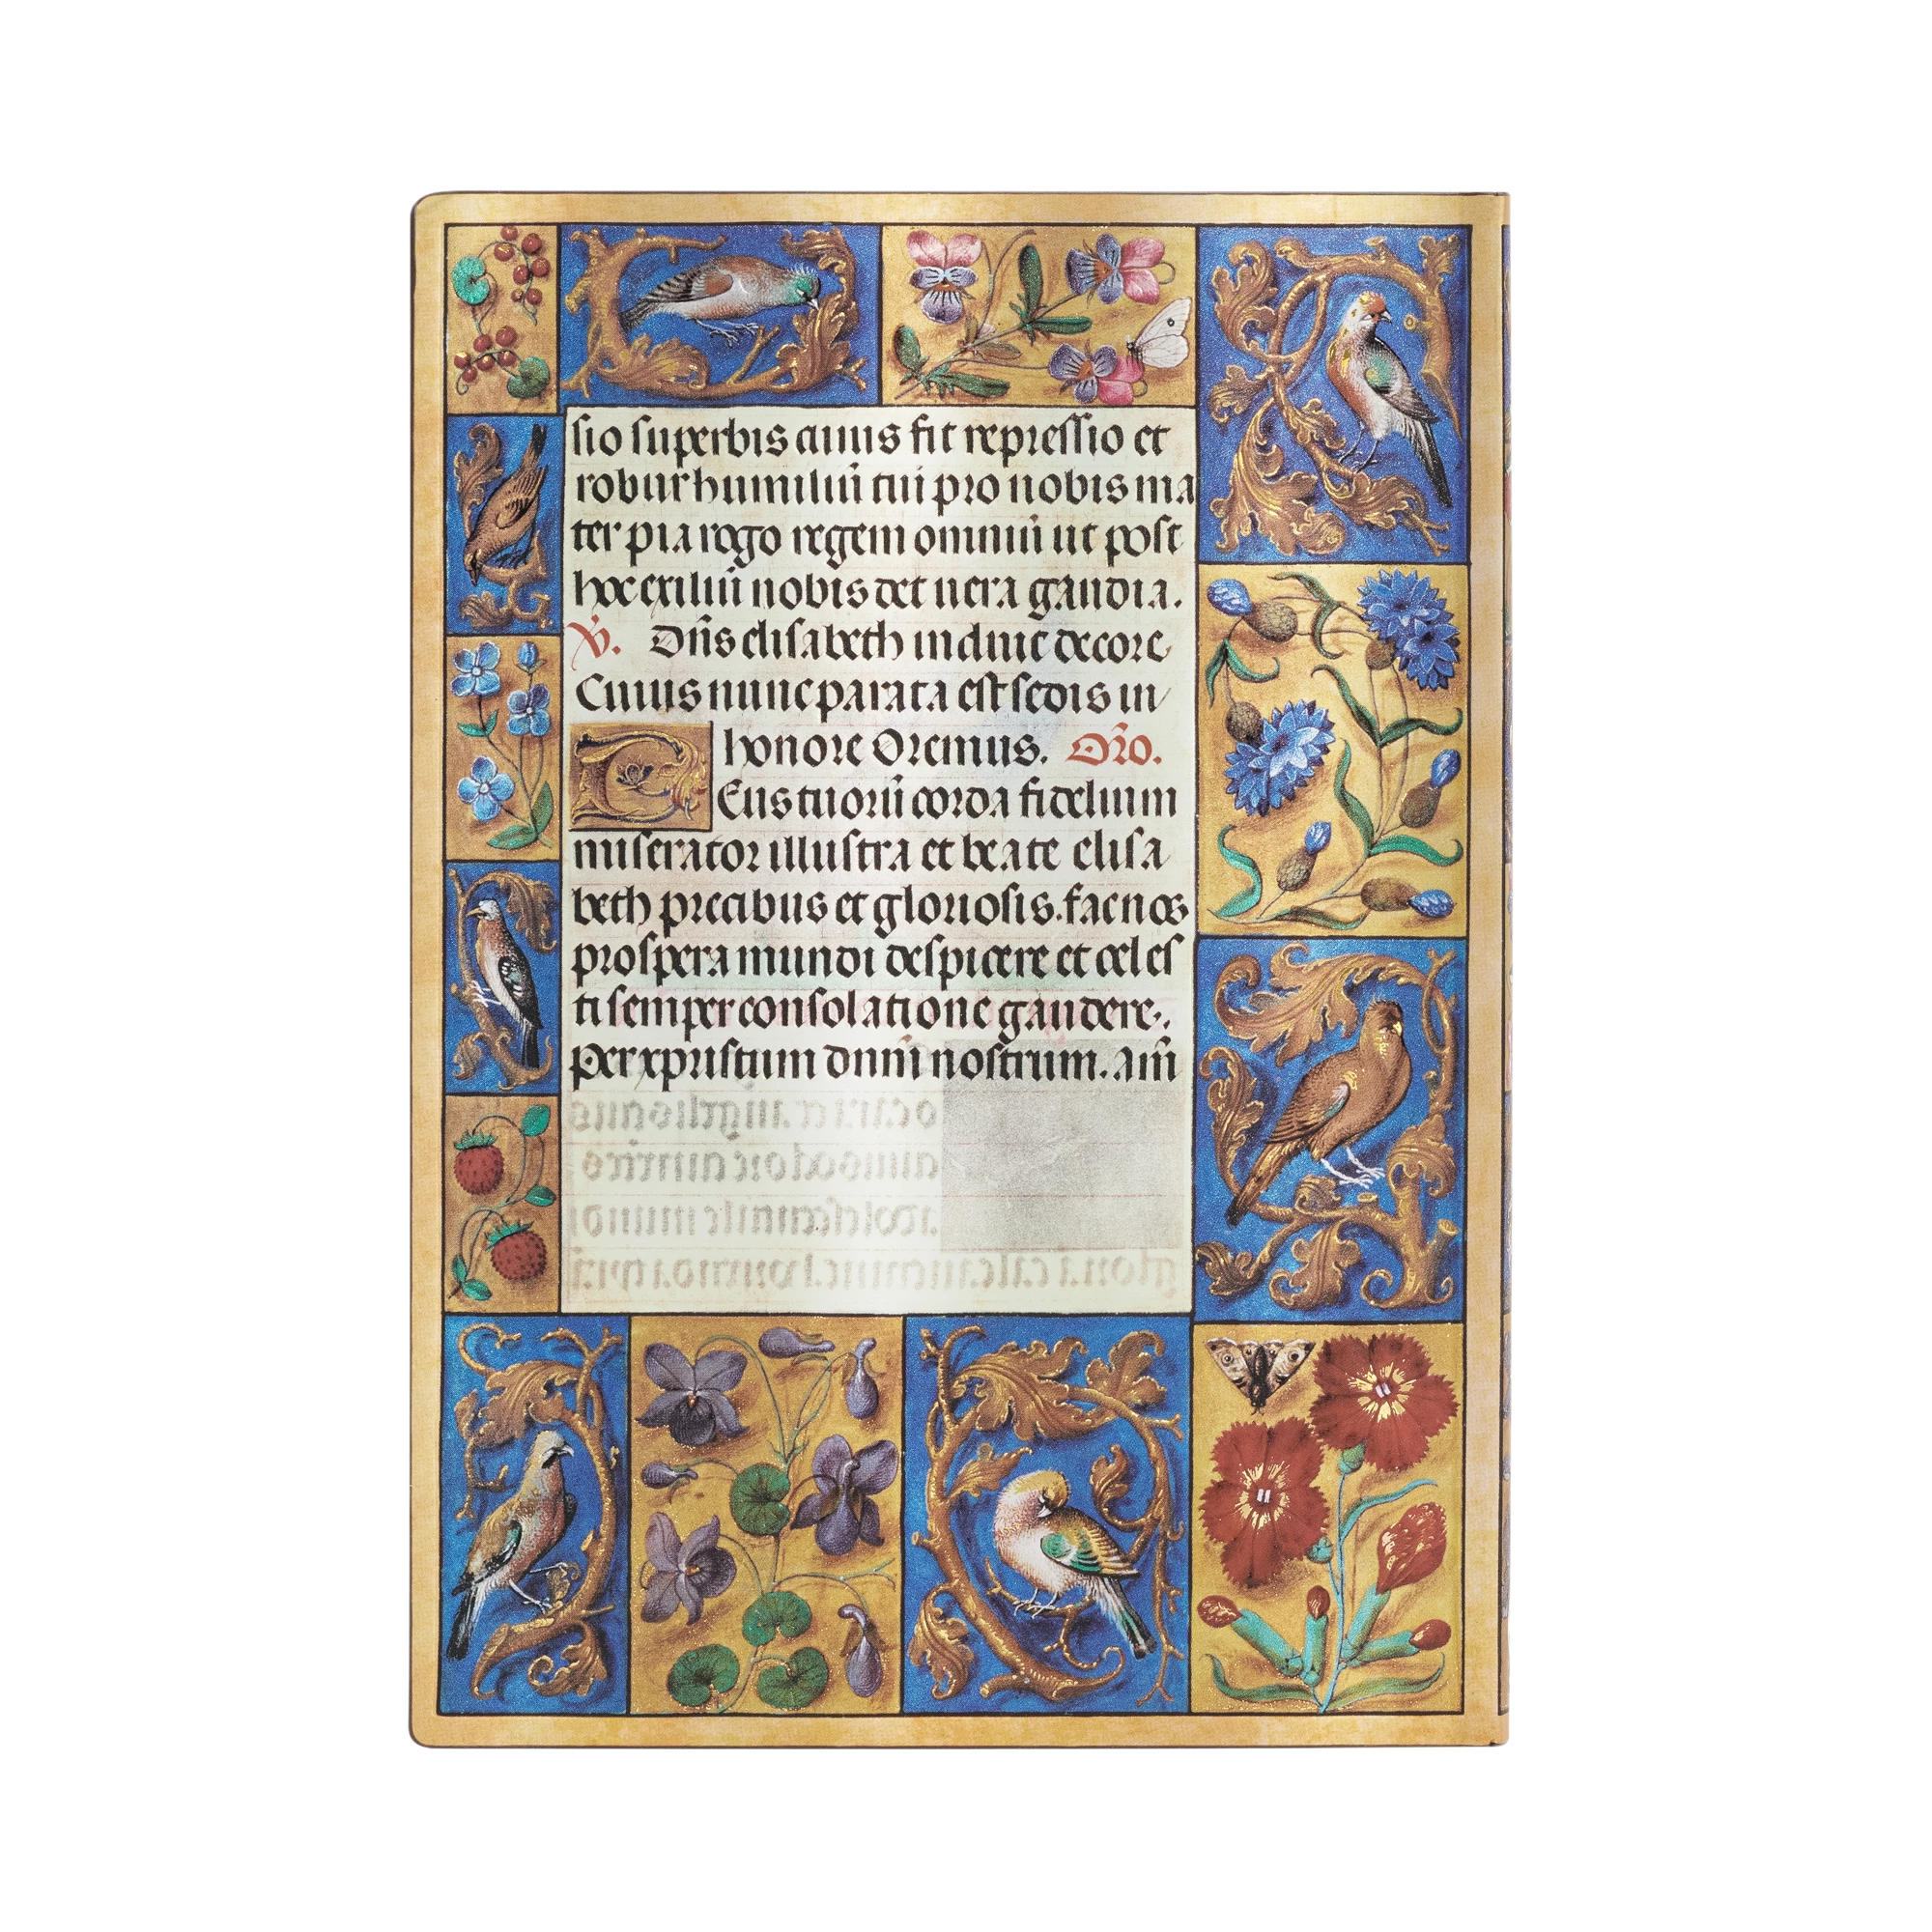 sio superbis cuius fit repressio et
robur humiliū tui pro nobis ma
ter pia rogo regem omniū ut post
hoc exiliū nobis det uera gaudia.
V̄. Dn̄s elisabeth induit decore
Cuius nunc parata est sedis in
honore Oremus. Or̄o.
DEus tuorū corda fidelium
miserator illustra et beate elisa
beth precibus et gloriosis. fac nos
prospera mundi despicere et celes
ti semper consolatione gaudere.
Per xpristum dnm̄ nostrum. Am̄